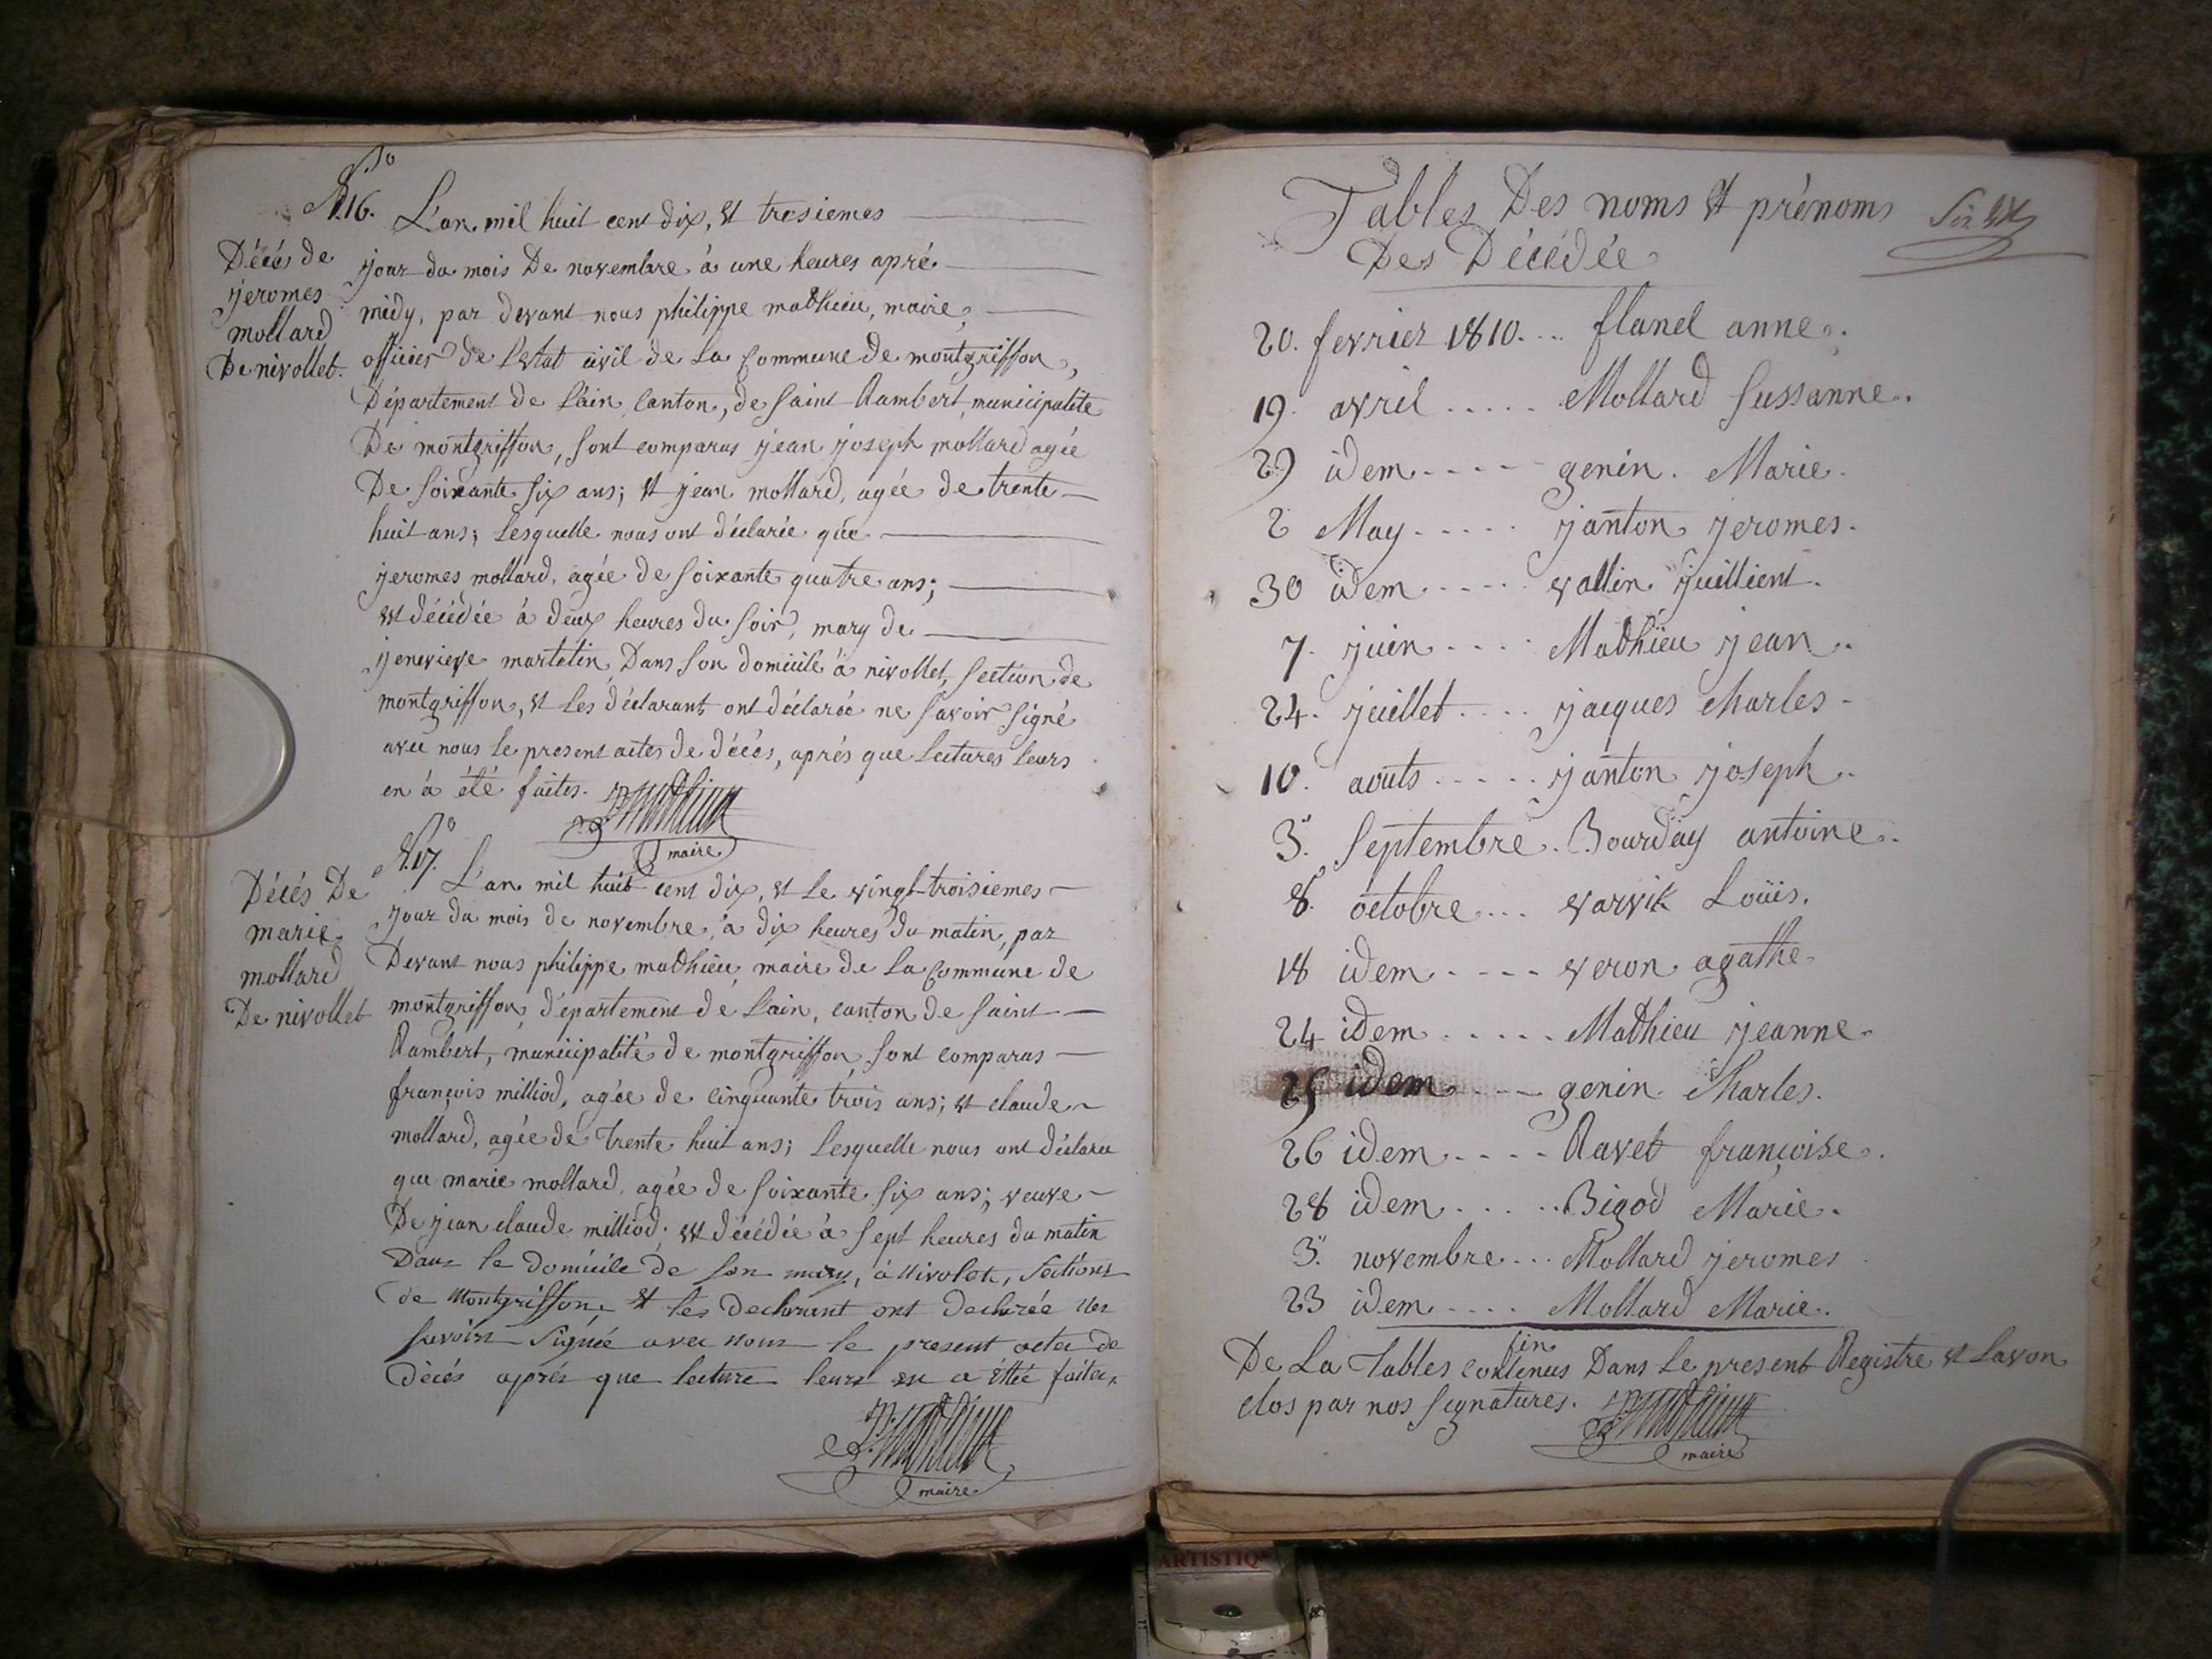 N.º 16. L'an mil huit cent dix, et trosiemes
Décés de
jeromes
mollard
De nivollet.
jour du mois De novembre à une heures apré
midy, par devant nous philippe mathieu, maire,
officier de l'etat civil de La Commune de montgriffon,
Département de L'ain Canton, de saint Rambert, municipalité
De montgriffon, sont comparus jean joseph mollard agée
De soixante six ans; et jean mollard, agée de trente
huit ans; Lesquelle nous ont déclarée que
jeromes mollard, agée de soixante quatre ans;
est décédée à deux heures du soir, mary de
jenevieve martelin Dans son domicile à nivollet, section de
montgriffon, et Les déclarant ont déclarée ne savoir signé
avec nous le present actes de décés, aprés que Lectures Leurs
en à été faites.
maire
N.º 17. L'an mil huit cent dix, et le vingt-troisiemes
Décés De
marie
mollard
De nivollet
jour du mois de novembre, à dix heures du matin, par
Devant nous philippe mathieu, maire de La Commune de
montgriffon, département de Lain, canton de saint
Rambert, municipalité de montgriffon, sont comparus
françois milliod, agée de cinquante trois ans; et claude
mollard, agée de trente huit ans; Lesquelle nous ont déclaree
que marie mollard, agée de soixante six ans; veuve
De jean claude milliod; est décédée à sept heures du matin
Dans le domicile de son mary, à Nivolet, Sections
de Montgriffon, et les Declarant ont declarée ne
savoir Signée avec nous le present actes de
décés aprés que lecture leurs en a ettée faites,
maire
Tables Des noms et prénoms
Des Décédée
20. fevrier 1810. ... flanel anne.
19. avril ..... Mollard sussanne.
29 idem .... genin. Marie.
2 May ..... janton jeromes.
30 idem ..... vallin juillient.
7. juin .... Mathieu jean.
24. juillet .... jacques charles
10. aouts ..... janton joseph.
3. Septembre. Bourday antoine.
8. octobre .... varvik Loüis.
18 idem .... veron agathe.
24 idem ...... Mathieu jeanne
25 idem .... genin Charles.
26 idem .... Ravet françoise.
28 idem ...... Bigod Marie.
3. novembre ... Mollard jeromes
23 idem .... Mollard Marie.
fin
De La tables contenus Dans Le present Registre et Lavon
clos par nos signatures.
maire